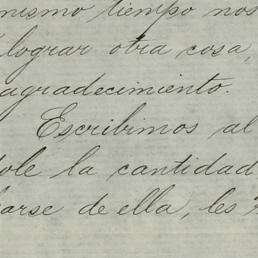 mismo tiempo nos
lograr otra cosa,
agradecimiento.
Escribimos al
dole la cantidad
arse de ella, les